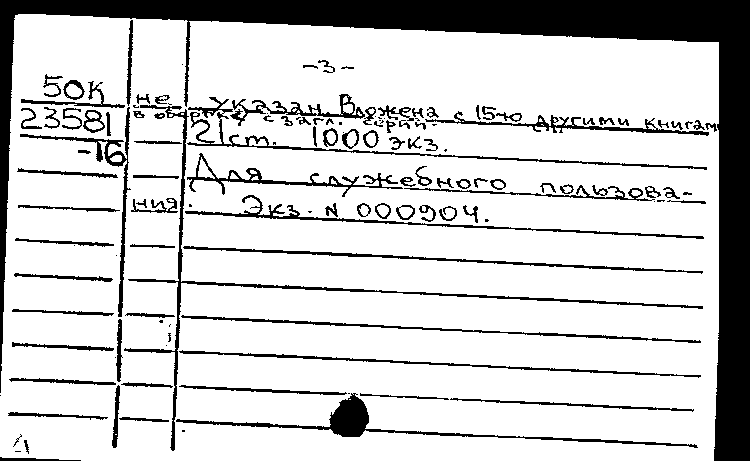 -3-
50К не указан. Вложена с 15-ю другими книгами
в обертку с загл. серии.
23581 21 ст. 1000 экз.
-16
Для служебного пользова-
ния. Экз. N 000904.